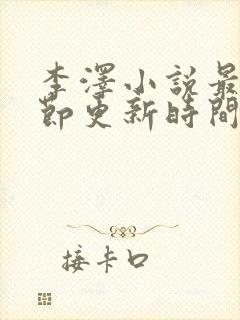 李澤小說最
節更新時間
接卡口